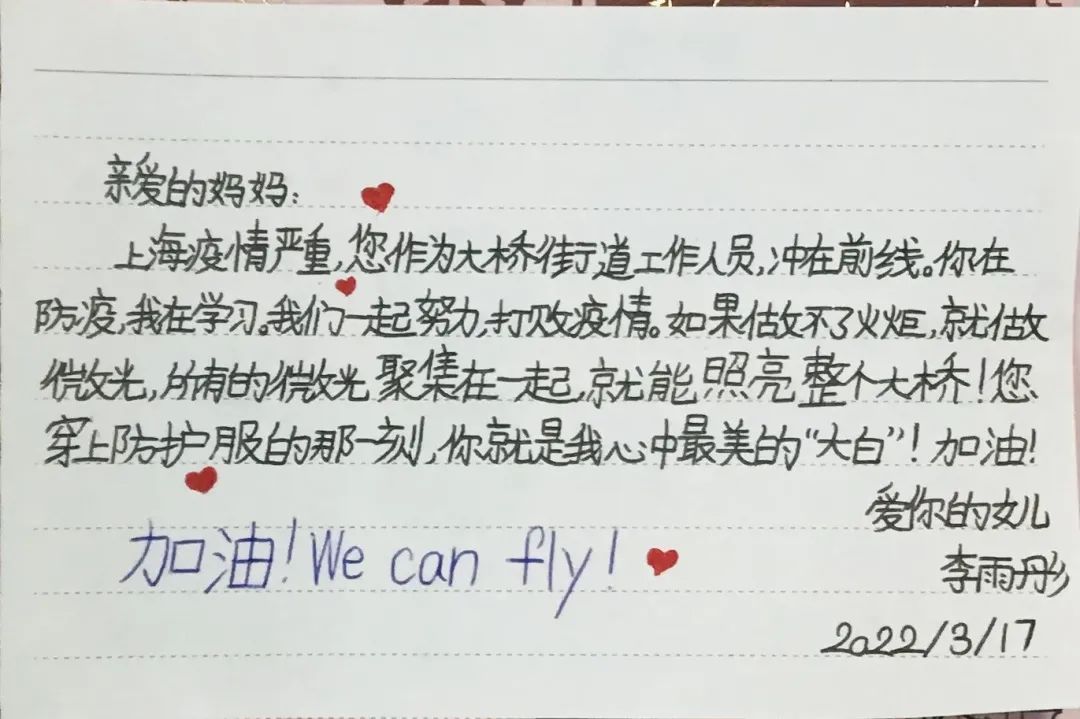 亲爱的妈妈：
上海疫情严重，您作为大桥街道工作人员，冲在前线。你在
防疫，我在学习。我们一起努力，打败疫情。如果做不了火炬，就做
微光，所有的微光聚集在一起，就能照亮整个大桥！您
穿上防护服的那一刻，你就是我心中最美的“大白”！加油！
爱你的女儿
加油！We can fly！
李雨彤
2022/3/17